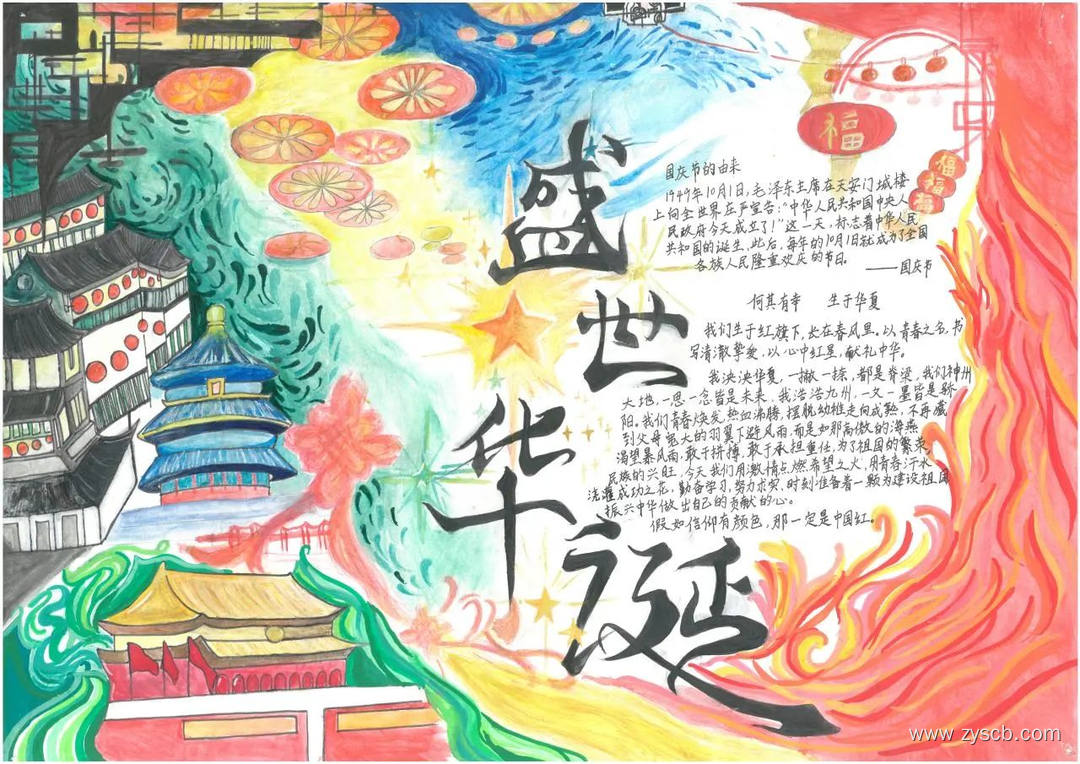 盛世华诞
福
福
福
福
国庆节的由来
1949年10月1日,毛泽东主席在天安门城楼
上向全世界庄严宣告:“中华人民共和国中央人
民政府今天成立了!”这一天,标志着中华人民
共和国的诞生,此后,每年的10月1日就成为了全国
各族人民隆重欢庆的节日。
——国庆节
何其有幸 生于华夏
我们生于红旗下,长在春风里。以青春之名,书
写清澈挚爱,以心中红星,献礼中华。
我泱泱华夏,一撇一捺,都是脊梁,我们神州
大地,一思一念皆是未来,我浩浩九州,一文一墨皆是骄
阳。我们青春焕发,热血沸腾,摆脱幼稚走向成熟,不再藏
到父母宽大的羽翼下避风雨,而是如那高傲的海燕
渴望暴风雨,敢于拼搏,敢于承担重任,为了祖国的繁荣,
民族的兴旺,今天我们用激情点燃希望之火,用青春汗水
浇灌成功之花,勤奋学习,努力求实,时刻准备着一颗为建设祖国
振兴中华做出自己的贡献的心。
假如信仰有颜色,那一定是中国红。
www.zyscb.com